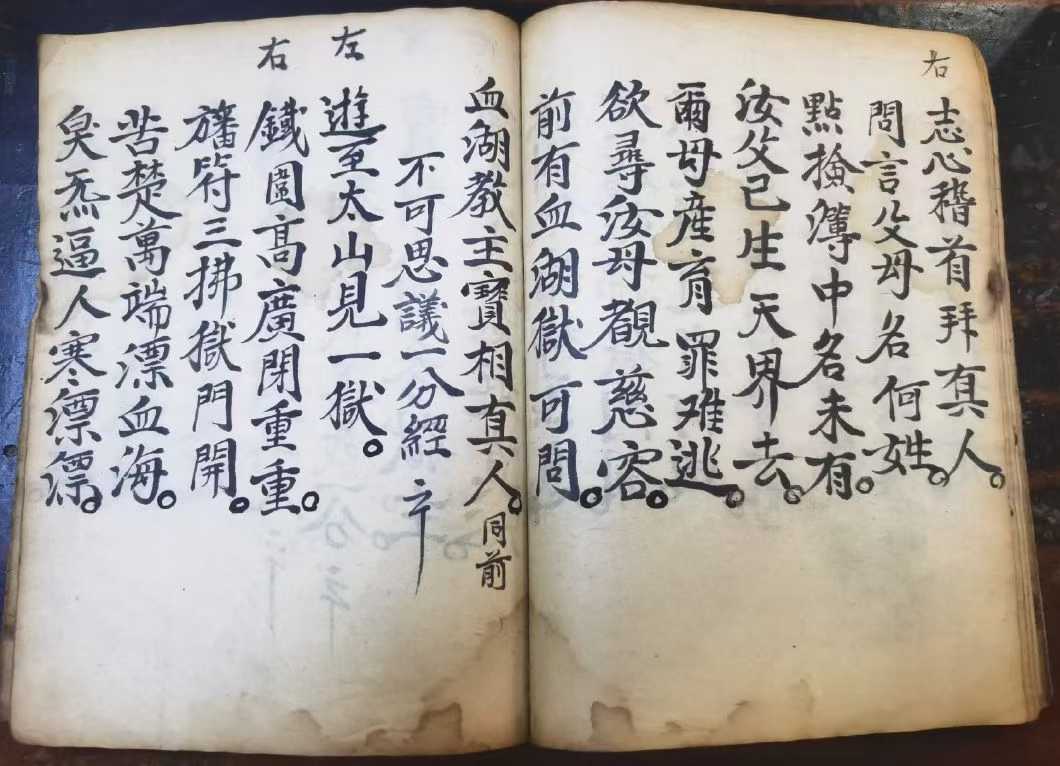 右
志心稽首拜真人。
問言父母名何姓。
點撿簿中名未有。
汝父已生天界去。
爾母產育罪难逃。
欲尋汝母覩慈容。
前有血湖獄可問。
血湖教主寶相真人。同前
不可思議一分經
左
遊至太山見一獄。
右
鐵圍高廣閉重重。
旛符三拂獄門開。
苦楚萬端漂血海。
臭炁逼人寒漂漂。